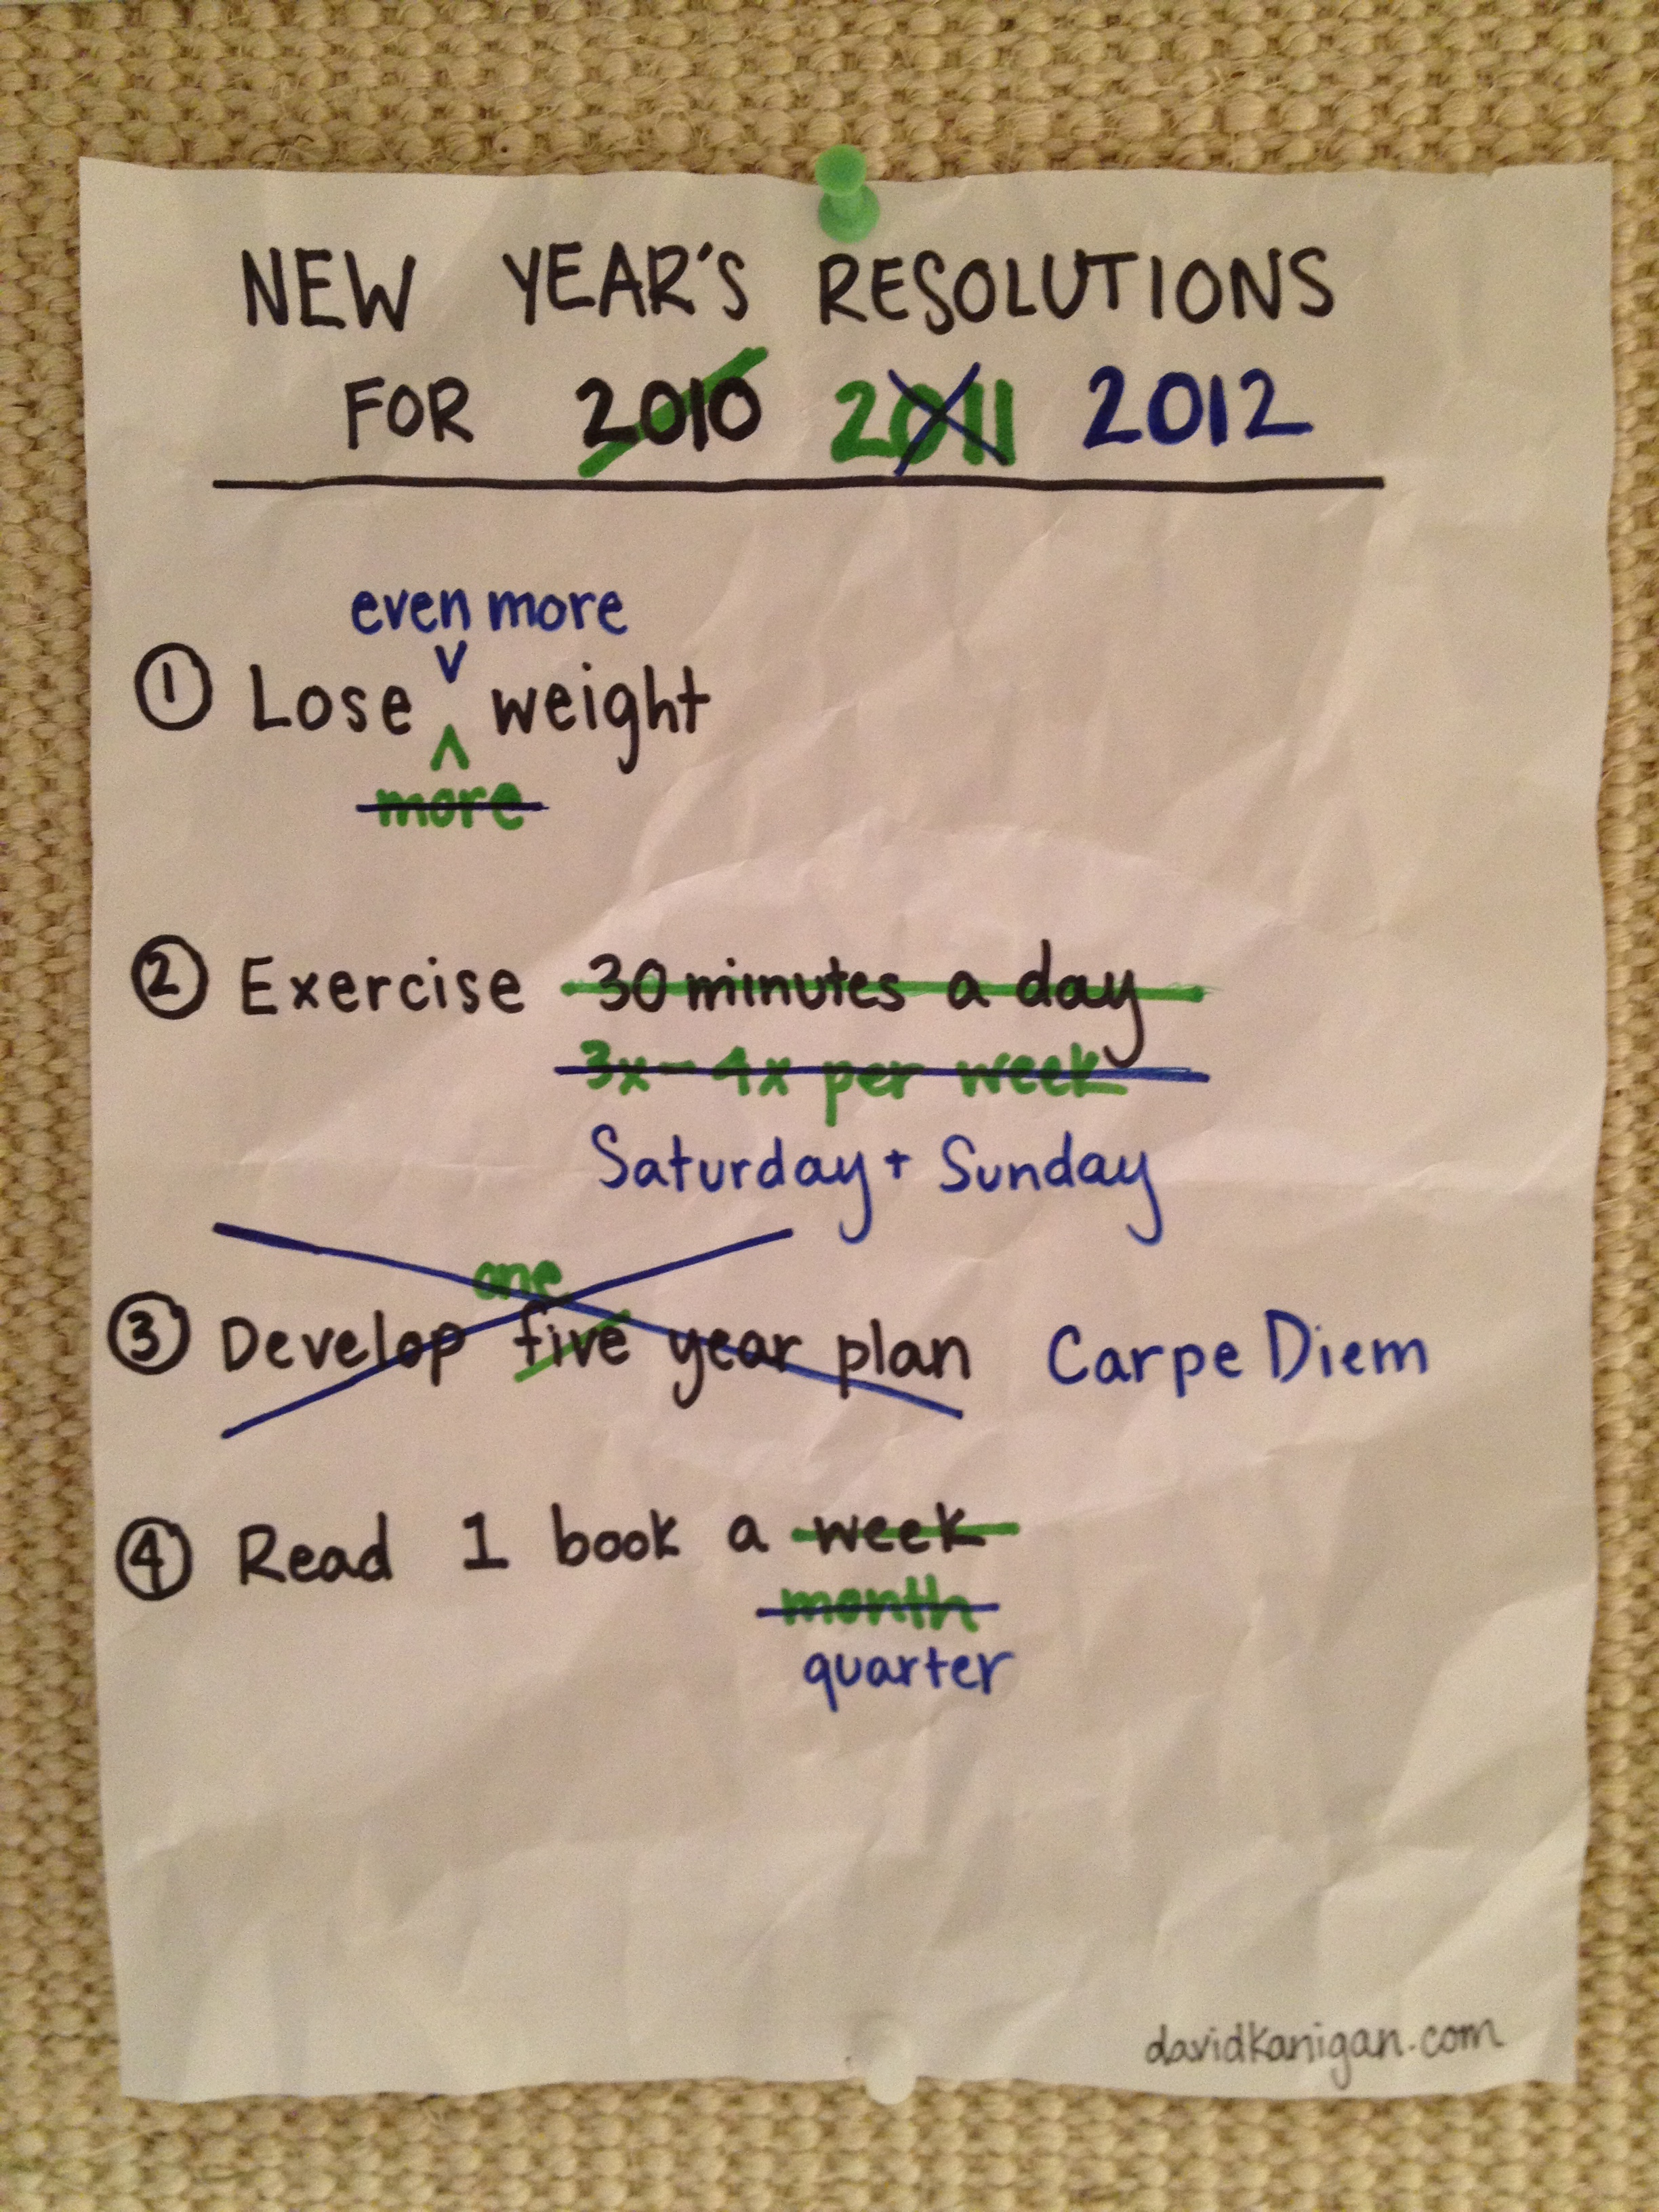 NEW YEAR'S RESOLUTIONS
FOR 2010 2011 2012
even more
① Lose weight
more
② Exercise 30 minutes a day
3x-4x per week
Saturday + Sunday
one
③ Develop five year plan Carpe Diem
④ Read 1 book a week
month
quarter
davidkanigan.com